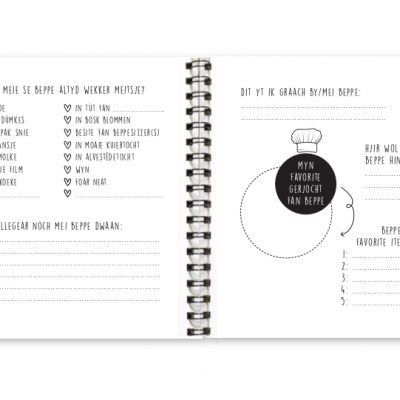 MEIE SE BEPPE ALTYD WEKKER MEITSJE?
DE
DÚMKES
PAK SNIE
ANSJE
MOLKE
JE FILM
KOEKE
IN TÚT FAN
IN BOSK BLOMMEN
BESITE FAN BEPPESIZZER(S)
IN MOAIE KUIERTOCHT
IN ALVESTÊDETOCHT
WYN
FOAR NEAT
LLEGEAR NOCH MEI BEPPE DWAAN:
DIT YT IK GRAACH BY/MEI BEPPE:
MYN
FAVORITE
GERJOCHT
FAN BEPPE
HJIR WOL
BEPPE HIN
BEPPE
FAVORITE ITE
1:
2:
3:
4:
5: